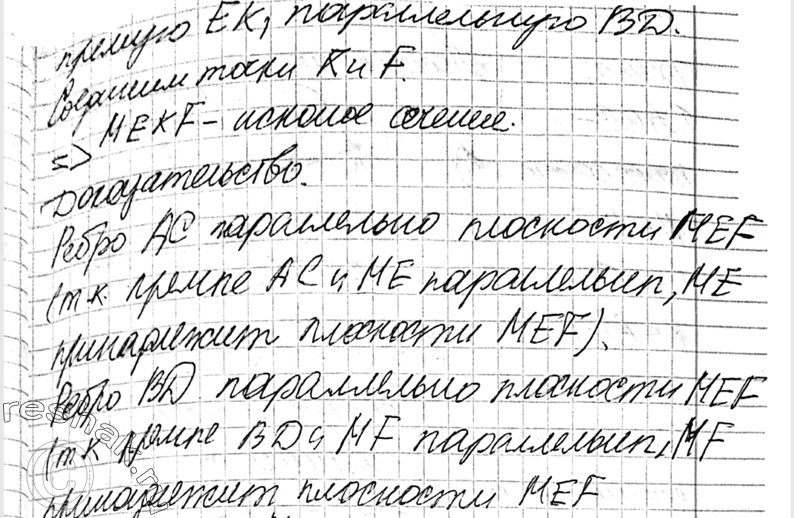 прямую EK, параллельную BD.
Соединим точки K и F.
=> MEKF - искомое сечение.
Доказательство.
Ребро AC параллельно плоскости MEF
(т.к. прямые AC и ME параллельны, ME
принадлежит плоскости MEF).
Ребро BD параллельно плоскости MEF
(т.к прямые BD и MF параллельны, MF
принадлежит плоскости MEF